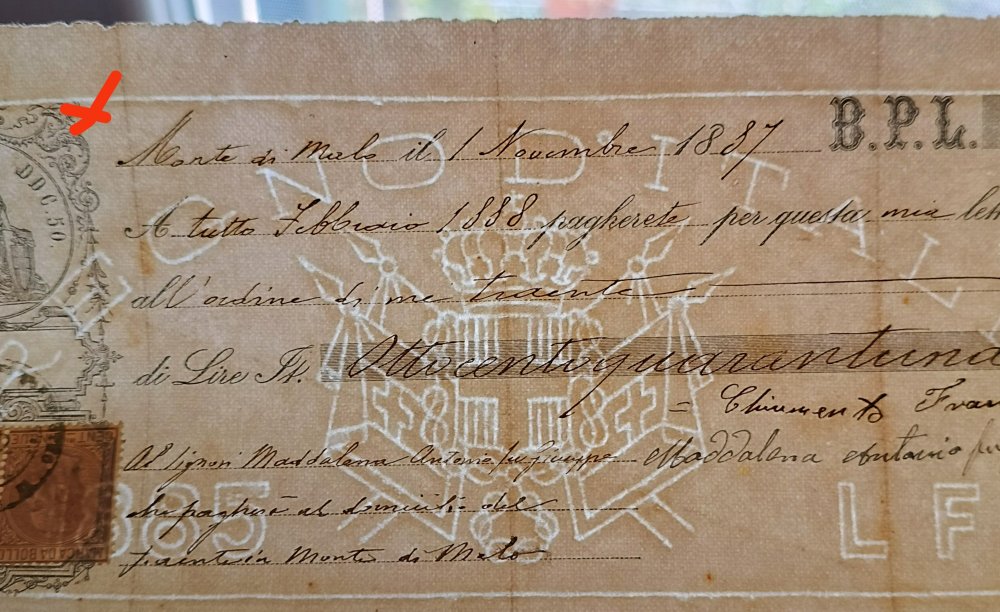 B.P.L.
DDC.50.
Monte di Malo il 1 Novembre 1887
A tutto Febbraio 1888 pagherete per questa mia
all'ordine di me traente
di Lire It. Ottocentoquarantuna
= Chiumento
Al Signori Maddalena Antonio fu Giuseppe Maddalena Antonio fu
che pagherà al domicilio del
traente in Monte di Malo
REGNO D'ITALIA
1885
L F